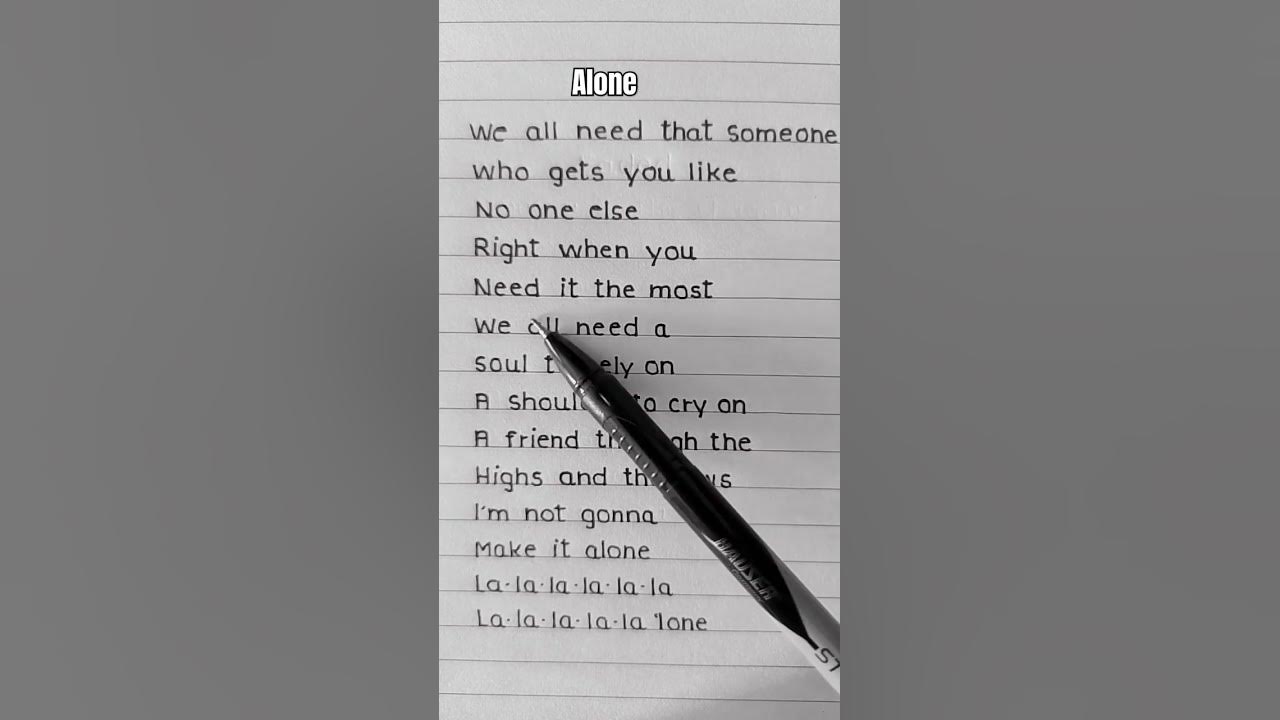 Alone
We all need that someone
who gets you like
No one else
Right when you
Need it the most
We all need a
soul ely on
A to cry on
A friend the
Highs and
I'm not gonna
Make it alone
La-la-la-la-la-la
La-la-la-la-la 'lone
HAUSER